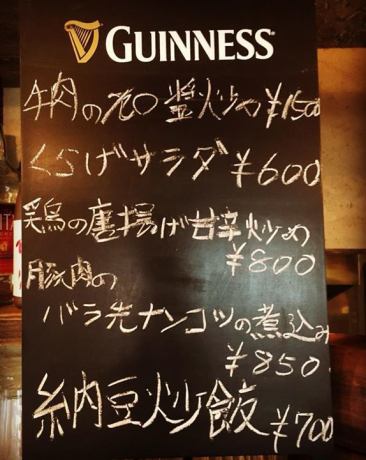 GUINNESS
牛肉のXO醤炒め ¥1500
くらげサラダ ¥600
鶏の唐揚げ甘辛炒め
¥800
豚肉の
バラ先ナンコツの煮込み
¥850
納豆炒飯 ¥700